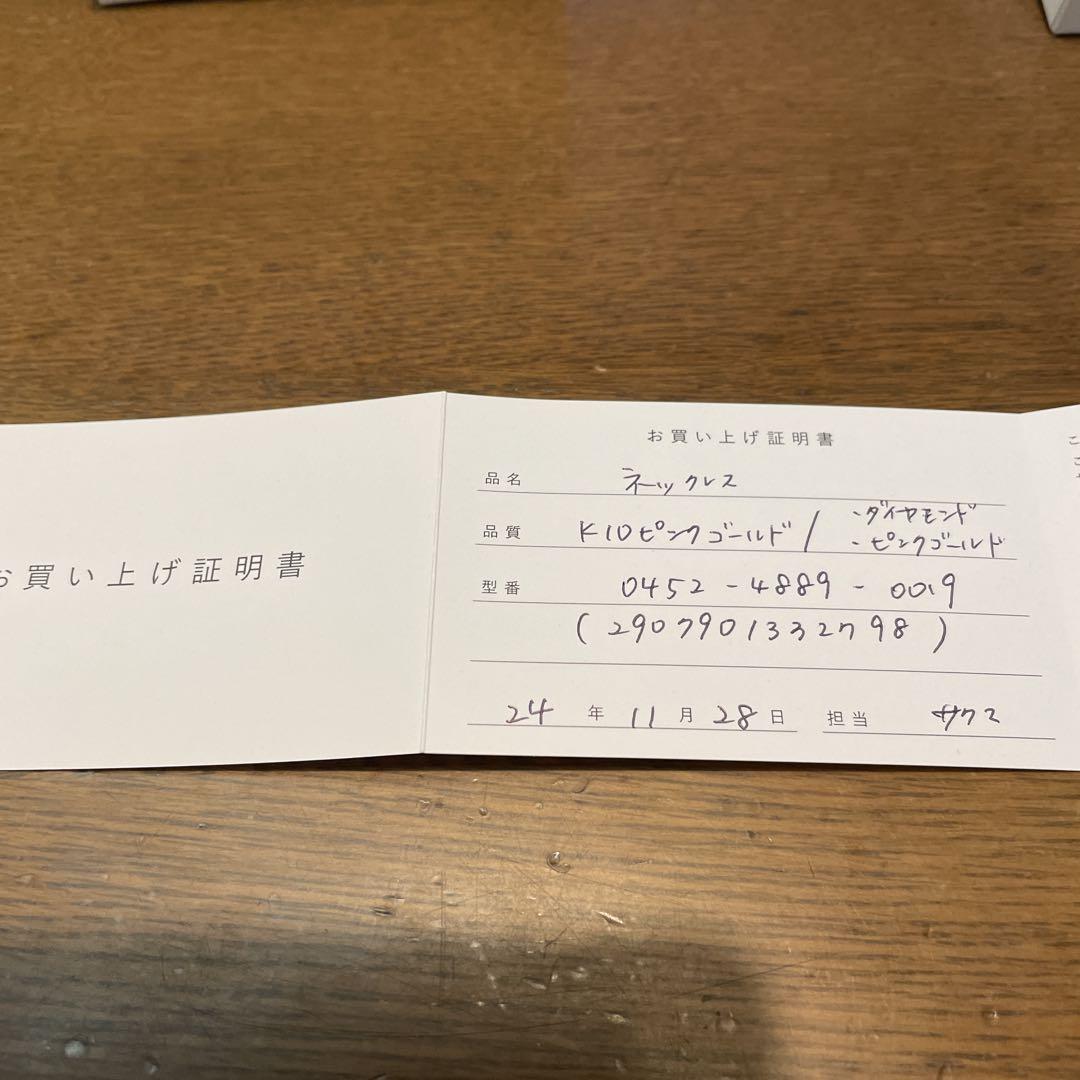 お買い上げ証明書
お買い上げ証明書
品名 ネックレス
品質 K10ピンクゴールド / ・ダイヤモンド
・ピンクゴールド
型番 0452-4889-0019
(2907901332798)
24年11月28日 担当